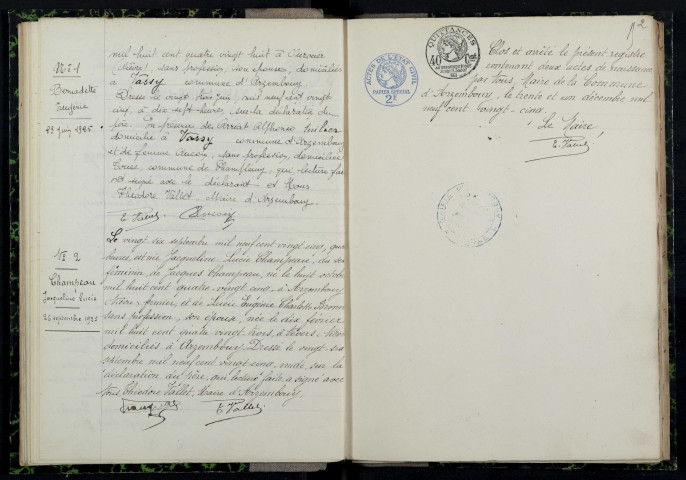 Nº 1
Bernadette
Eugénie
23 juin 1925.
mil huit cent quatre vingt huit à
(Nièvre) sans profession, son épouse, domiciliés
à Vassy commune d'Arzembouy
Dressé le vingt trois juin, mil neuf cent vingt
cinq, à dix sept heures, sur la déclaration du
père. En présence de Alphonse,
domicilié à Vassy commune d'Arzembouy
et de femme sans profession, domiciliée
commune de Champlemy, qui, lecture faite
ont signé avec le déclarant et Nous
Théodore Vallet Maire d'Arzembouy.
Nº 2
Champeau
Jacqueline Lucie
26 septembre 1925
Le vingt six septembre mil neuf cent vingt cinq,
heures, est née Jacqueline Lucie Champeau, du sexe
féminin, de Jacques Champeau, né le huit octobre
mil huit cent quatre-vingt cinq, à Arzembouy
Nièvre, fermier, et de Lucie Eugénie Charlotte
sans profession, son épouse, née le dix février
mil huit cent quatre vingt trois, à Nevers,
domiciliés à Arzembouy. Dressé le vingt-six
septembre mil neuf cent vingt cinq, midi, sur la
déclaration du père, qui, lecture faite, a signé avec
Nous, Théodore Vallet, Maire d'Arzembouy.
T. Vallet
ACTES DE L'ÉTAT CIVIL
PAPIER SPÉCIAL
2F
QUITTANCES
40
2
Clos et arrêté le présent registre
contenant deux actes de naissance
par Nous, Maire de la Commune
d'Arzembouy, le trente et un décembre mil
neuf cent vingt-cinq.
Le Maire,
T. Vallet